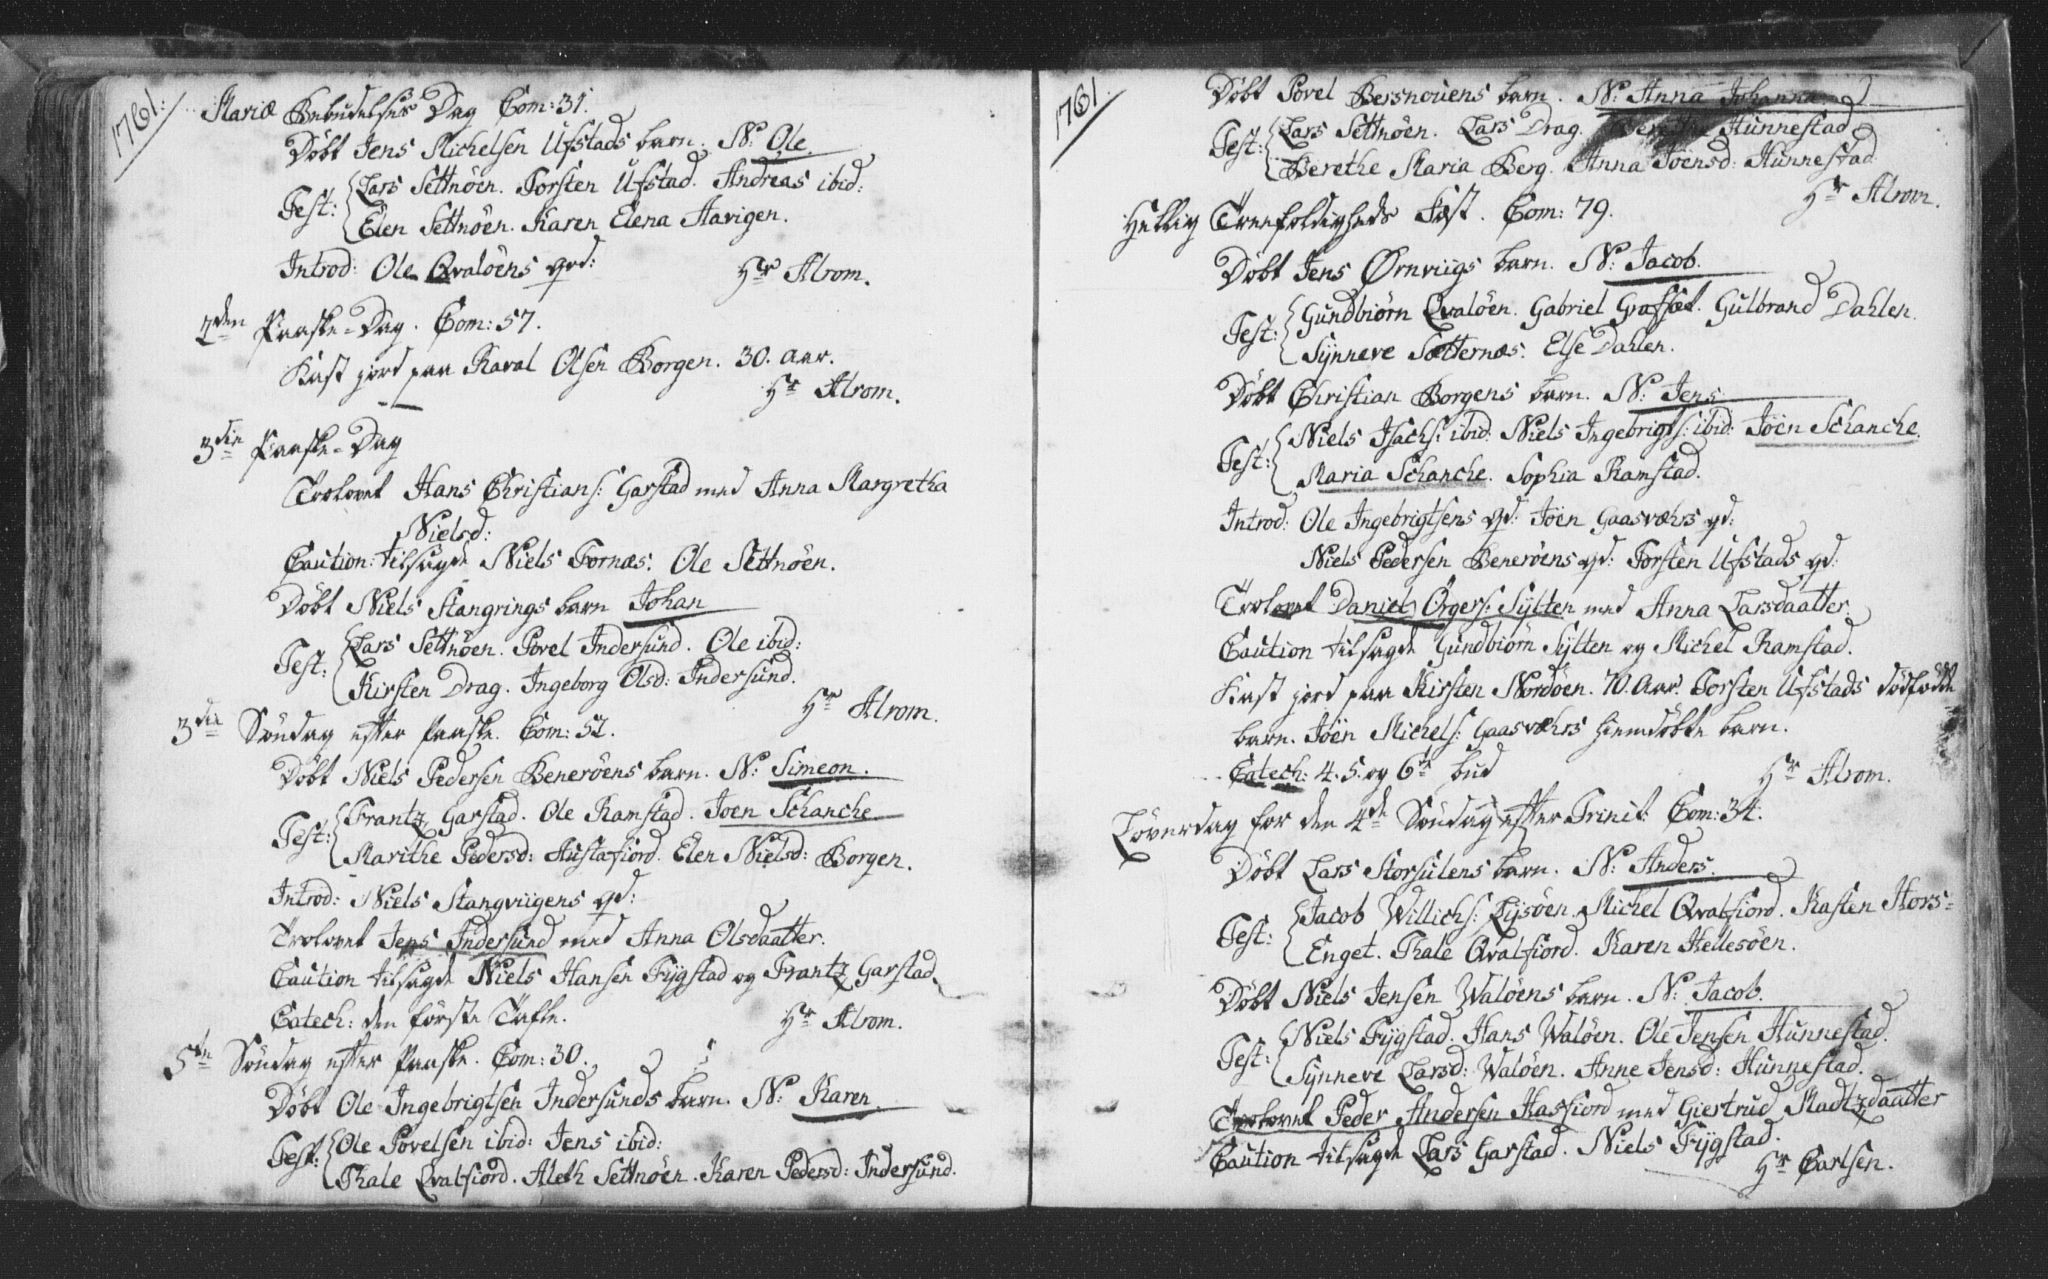 1761.
Mariæ Bebudelses Dag Com: 31.
Døbt Jens Michelsen Ufstads barn. N: Ole.
Test: Lars Settnöen. Torsten Ufstad. Andreas ibid:
Elen Settnöen. Karen Elena Aavigen.
Introd: Ole Qvalöens qvd:
Hr Alrom.
2den Paaske-Dag. Com: 57.
Kast jord paa Olsen Borgen. 30. aar.
Hr Alrom.
3die Paaske-Dag
Trolovet Hans Christians: Garstad med Anna Margretha
Nielsd:
Caution: tilsagde Niels Fornæs. Ole Settnöen.
Døbt Niels Stangrings barn Johan
Test: Lars Settnöen. Povel Indersund. Ole ibid:
Kirsten Drag. Ingeborg Olsd: Indersund.
Hr Alrom.
3die Søndag efter Paaske. Com: 52.
Døbt Niels Pedersen Beneröens barn. N: Simeon.
Test: Frantz Garstad. Ole Ramstad. Joen Schanche.
Marithe Pedersd: Austafiord. Elen Nielsd: Borgen.
Introd: Niels Stangviigens qd:
Trolovet Jens Indersund med Anna Olsdaatter.
Caution tilsagde Niels Hansen Fygstad og Frantz Garstad.
Catech: den første Tafle.
Hr Alrom.
5te Søndag efter Paaske. Com: 30.
Døbt Ole Ingebrigtsen Indersunds barn. N: Karen.
Test: Ole Povelsen ibid: Jens ibid:
Thale Qvalfiord. Aleth Settnöen. Karen Pedersd: Indersund.
1761.
Døbt Povel Bersnouens barn. N: Anna Johanna.
Test: Lars Settnöen. Lars Drag. Berethe Hunnestad
Berethe Maria Berg. Anna Joensd: Hunnestad
Hr Alrom.
Hellig Treefoldigheds Fest. Com: 79.
Døbt Jens Ørnviigs barn. N: Jacob.
Test: Gundbiörn Qvalöen. Gabriel Græfset. Gulbrand Dahlen.
Synneve Sætternæs. Else Dahlen.
Døbt Christian Borgens barn. N: Jens.
Test: Niels Isachs: ibid: Niels Ingebrigts: ibid: Jöen Schanche.
Maria Schanche. Sophia Ramstad.
Introd: Ole Ingebrigtsens qd: Jöen Gaasværs qd:
Niels Pedersen Beneröens qd: Torsten Ufstads qd:
Trolovet Daniel Örgers: Sylten med Anna Larsdaatter.
Caution tilsagde Gundbiörn Sylten og Michel Ramstad.
Kast jord paa Kirsten Nordöen. 70. Aar. Torsten Ufstads dödfödde
barn. Jöen Michels: Gaasværs hiemdöbte barn.
Catech: 4. 5. og 6te bud
Hr Alrom.
Löverdag for den 4de Søndag efter Trinit: Com: 34.
Døbt Lars Storsulens barn. N: Anders.
Test: Jacob Willichs: Lysöen. Michel Qvalfiord. Kasten Hors-
Enget. Thale Qvalfiord. Karen Hellesöen.
Døbt Niels Jensen Walöens barn. N: Jacob.
Test: Niels Fygstad. Hans Walöen. Ole Jensen Hunnestad.
Synneve Larsd: Walöen. Anne Jensd: Hunnestad.
Trolovet Peder Andersen Hasfiord med Giertrud Madtzdaatter
Caution tilsagde Lars Garstad. Niels Fygstad.
Hr Carlsen.